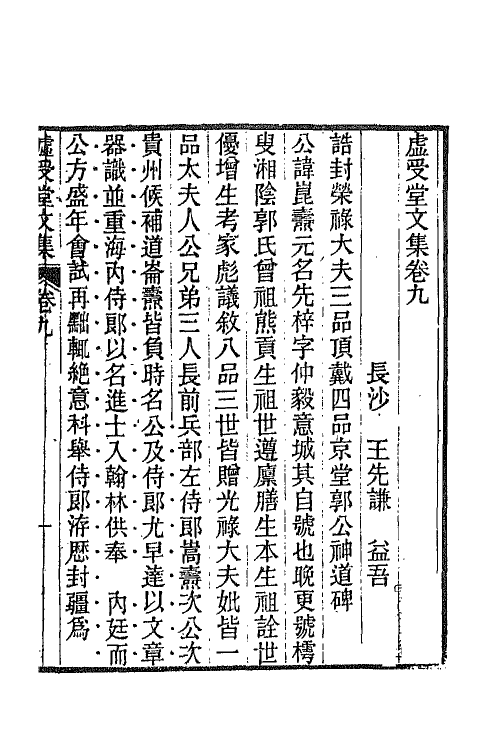 虛受堂文集卷九
長沙 王先謙 益吾
誥封榮祿大夫三品頂戴四品京堂郭公神道碑
公諱崑燾元名先梓字仲毅意城其自號也晚更號樗
叟湘陰郭氏曾祖熊貢生祖世遵廩膳生本生祖詮世
優增生考家彪議敘八品三世皆贈光祿大夫妣皆一
品太夫人公兄弟三人長前兵部左侍郎嵩燾次公次
貴州候補道崙燾皆負時名公及侍郎尤早達以文章
器識並重海內侍郎以名進士入翰林供奉 內廷而
公方盛年會試再黜輒絕意科舉侍郎洊歷封疆爲
虛受堂文集 卷九 一